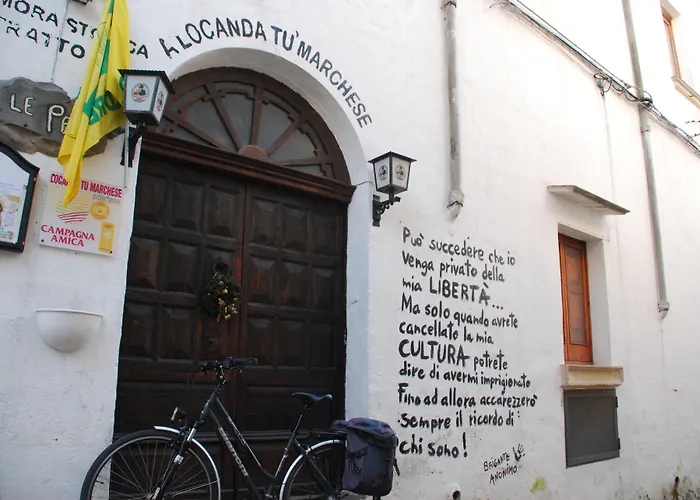 MORA STO
TRATTO
A LOCANDA TU' MARCHESE
LE PE
COCANDA TU MARCHESE
CAMPAGNA
AMICA
Può succedere che io
venga privato della
mia LIBERTÀ...
Ma solo quando avrete
cancellato la mia
CULTURA potrete
dire di avermi imprigionato
Fino ad allora accarezzerò
sempre il ricordo di
chi sono!
BRIGANTE
ANONIMO